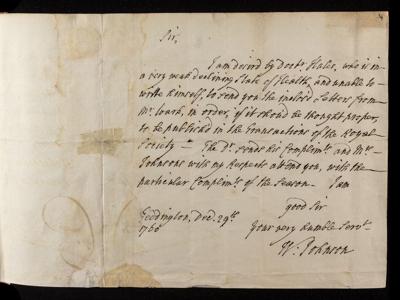 Sir,
I am desird by Doctr. Hales, who is in
a very weak declining State of Health, and unable to
write himself, to send you the inclosd Letters from
Mr. in order, if it should be thought proper,
to be publishd in the Transactions of the Royal
Society — The Dr. sends his Complimts. and Mrs.
Johnsons with my Respects attend you, with the
particular Complimts. of the Season. I am
good Sir
Teddington, Decr. 29th.
1760
Your very humble Servt.
W. Johnson